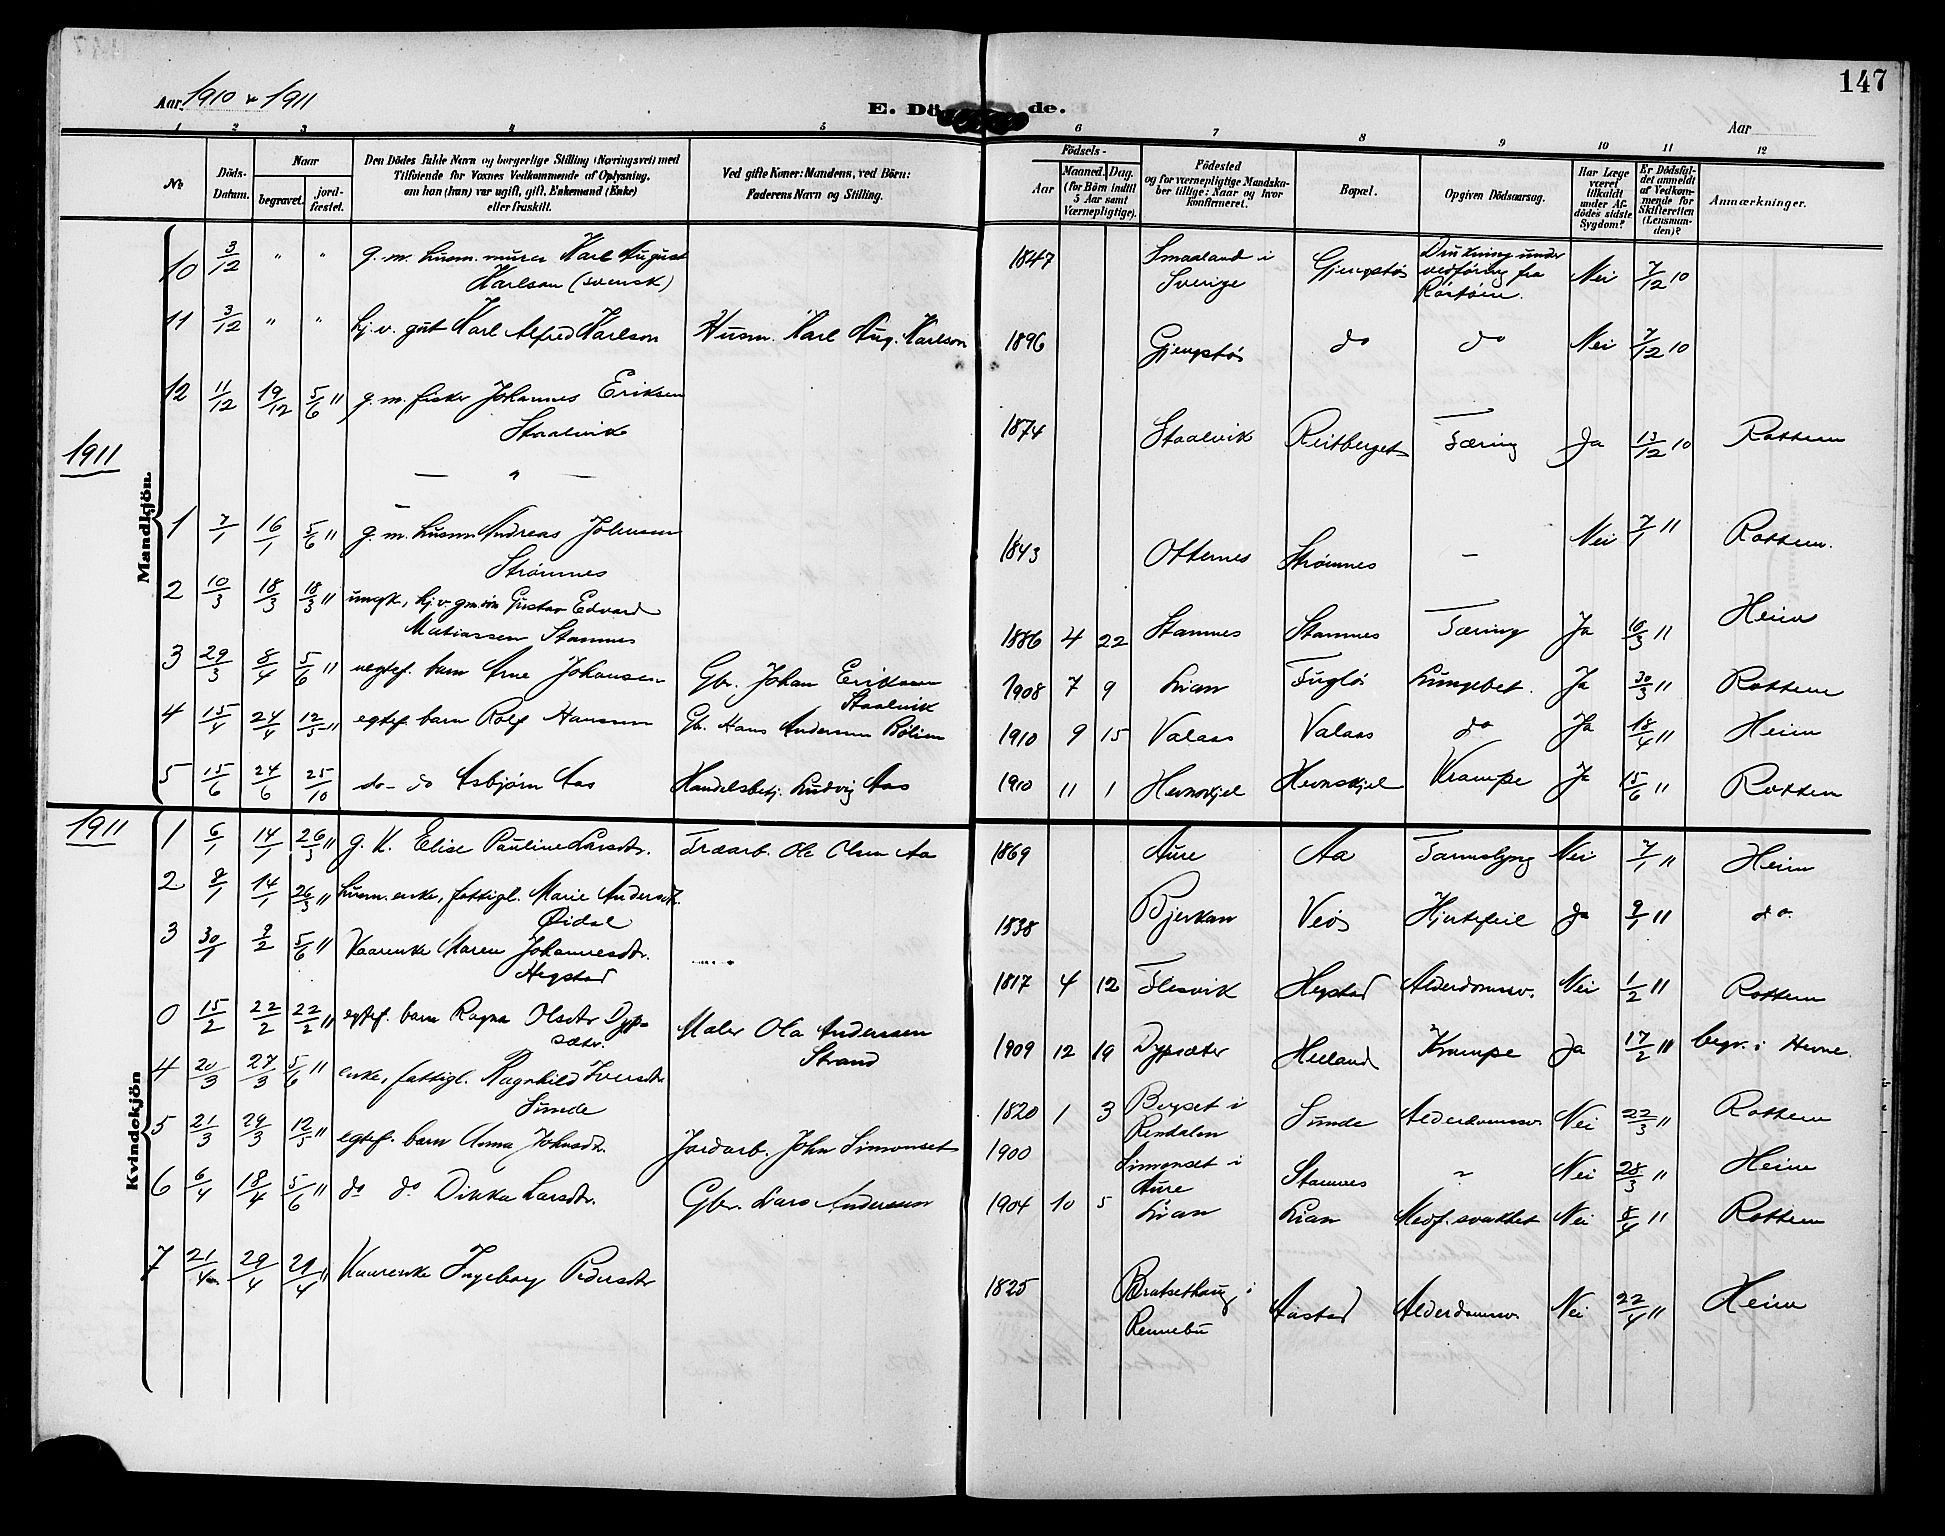 147
Aar 1910 & 1911
E. Dö de.
Aar
1 2 3 4 5 6 7 8 9 10 11 12
No
Döds-Datum.
Naar
begravet.
jord-fæstet.
Den Dödes fulde Navn og borgerlige Stilling (Næringsvei) med
Tilföiende for Voxnes Vedkommende af Oplysning,
om han (hun) var ugift, gift, Enkemand (Enke)
eller fraskilt.
Ved gifte Koner: Mandens, ved Börn:
Faderens Navn og Stilling.
Födsels-
Aar
Maaned. Dag.
(for Börn indtil
5 Aar samt
Værnepligtige).
Födested
og for værnepligtige Mandska-
ber tillige: Naar og hvor
konfirmeret.
Bopæl.
Opgiven Dödsaarsag.
Har Læge
været
tilkaldt
under Af-
dödes sidste
Sygdom?
Er Dödsfal-
det anmeldt
af Vedkom-
mende for
Skifteretten
(Lensman-
den)?
Anmærkninger.
Mandkjön.
10 3/12 " " g. m. husm. murer Karl August Karlson (svensk) 1847 Smaaland i Sverige Gjengstø Drukning under vedföring fra Röstöen. Nei 7/12 10
11 3/12 " " hj. v. gut Karl Alfred Karlson Husm. Karl Aug. Karlson 1896 Gjengstø do do Nei 7/12 10
12 11/12 19/12 5/6 11 g. m. fisker Johannes Eriksen Staalvik 1874 Staalvik Reitberget Tæring Ja 13/12 10 Rottem
1911
— " —
1 7/1 16/1 5/6 11 g. m. husm. Andreas Johnsen Strømnes 1843 Otternes Strømnes — Nei 7/1 11 Rottem.
2 10/3 18/3 18/3 11 ungk., hj. v. gm. søn Gustav Edvard Matiassen Stamnes 1886 4 22 Stamnes Stamnes Tæring Ja 10/3 11 Heim
3 29/3 8/4 5/6 11 uegtef. barn Arne Johansen Gbr. Johan Eriksen Staalvik 1908 7 9 Lian Fuglö Lungebet. Ja 30/3 11 Rottem
4 15/4 24/4 12/5 11 egtef. barn Rolf Hansen Gb. Hans Andersen Bölien 1910 9 15 Valaas Valaas do Ja 18/4 11 Heim
5 15/6 24/6 25/10 do - do Asbjørn Aas Handelsbetj. Ludvig Aas 1910 11 1 Hevnskjel Hevnskjel Krampe Ja 15/6 11 Rottem
1911
Kvindekjön
1 6/1 14/1 26/3 11 g. k. Elise Pauline Larsdtr. Træarb. Ole Olsen Aa 1869 Aure Aa Tarmslyng Nei 7/1 11 Heim
2 8/1 14/1 26/3 11 husm. enke, fattigl. Marie Andersdtr. Øidal 1838 Bjerkan Veøs Hjertefeil Ja 9/1 11 do
3 30/1 9/2 5/6 11 Kaarenke Maren Johannesdtr. Hegstad 1817 4 12 Flesvik Hegstad Alderdomssv. Nei 1/2 11 Rottem
0 15/2 22/2 22/2 11 egtef. barn Ragna Olsdtr Dyp- sæter. Maler Ola Anderssen Strand 1909 12 19 Dypsæter Heeland Krampe Ja 17/2 11 begr. i Hevne.
4 20/3 27/3 5/6 11 enke, fattigl. Ragnhild Iversdtr Sunde 1820 1 3 Bogset i Rindalen Sunde Alderdomssv. Nei 22/3 11 Rottem
5 21/3 29/3 12/5 11 egtef. barn Anna Johnsdtr. Jordarb. John Simonset 1900 Simonset i Aure Stamnes " Nei 28/3 11 Heim
6 6/4 18/4 5/6 11 do do Dikka Larsdtr. Gbr. Lars Anderssen 1904 10 5 Lian Lian Medf. svakhet Nei 8/4 11 Rottem
7 21/4 29/4 29/4 11 Kaarenke Ingeborg Pedersdtr 1825 Bratsethaug i Rennebu Aastad Alderdomssv. Nei 22/4 11 Heim